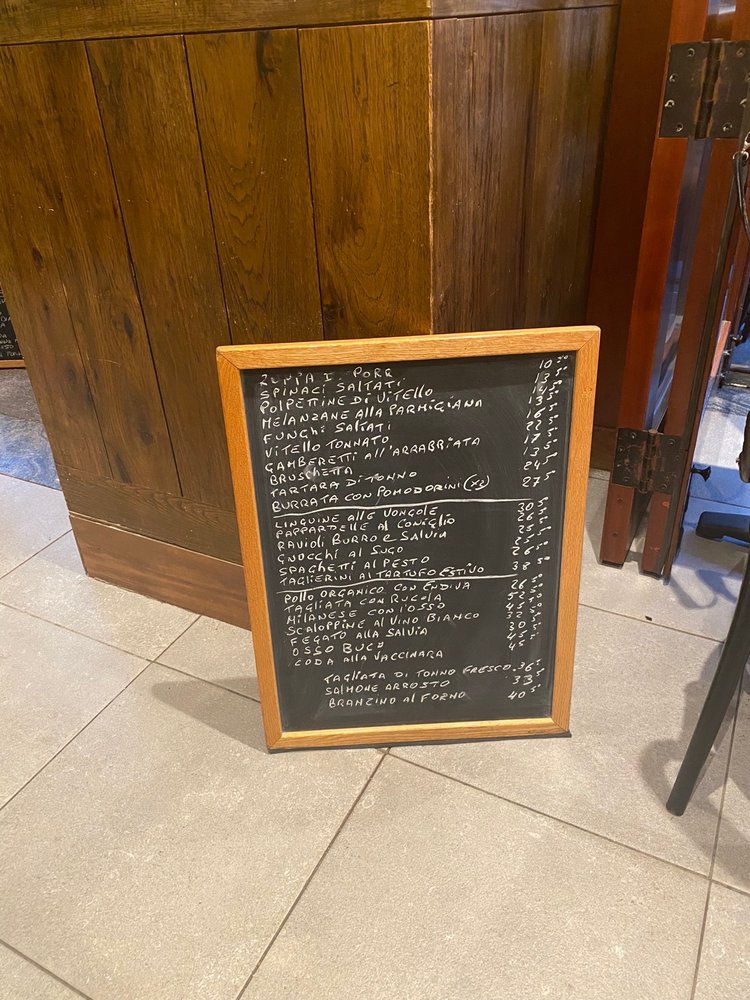 ZUPPA PORR 10 50
SPINACI SALTATI 13 50
POLPETTINE DI VITELLO 14 50
MELANZANE ALLA PARMIGIANA 13 50
FUNGHI SALTATI 16 5
VITELLO TONNATO 22 50
GAMBERETTI ALL'ARRABBIATA 17 5
BRUSCHETTA 13 5
TARTARA DI TONNO 24 5
BURRATA CON POMODORINI (X2) 27 5
LINGUINE ALLE VONGOLE 30 5
PAPPARDELLE AL CONIGLIO 26 5
RAVIOLI BURRO E SALVIA 25 5
GNOCCHI AL SUGO 25
SPAGHETTI AL PESTO 26 50
TAGLIERINI AL TARTUFO ESTIVO 38 50
POLLO ORGANICO CON ENDIVA 26 50
TAGLIATA CON RUCOLA 52 50
MILANESE CON L'OSSO 45 50
SCALOPPINE AL VINO BIANCO 32 5
FEGATO ALLA SALVIA 30 5
OSSO BUCO 45 5
CODA ALLA VACCINARA 45
TAGLIATA DI TONNO FRESCO 36 5
SALMONE ARROSTO 33 5
BRANZINO AL FORNO 40 5